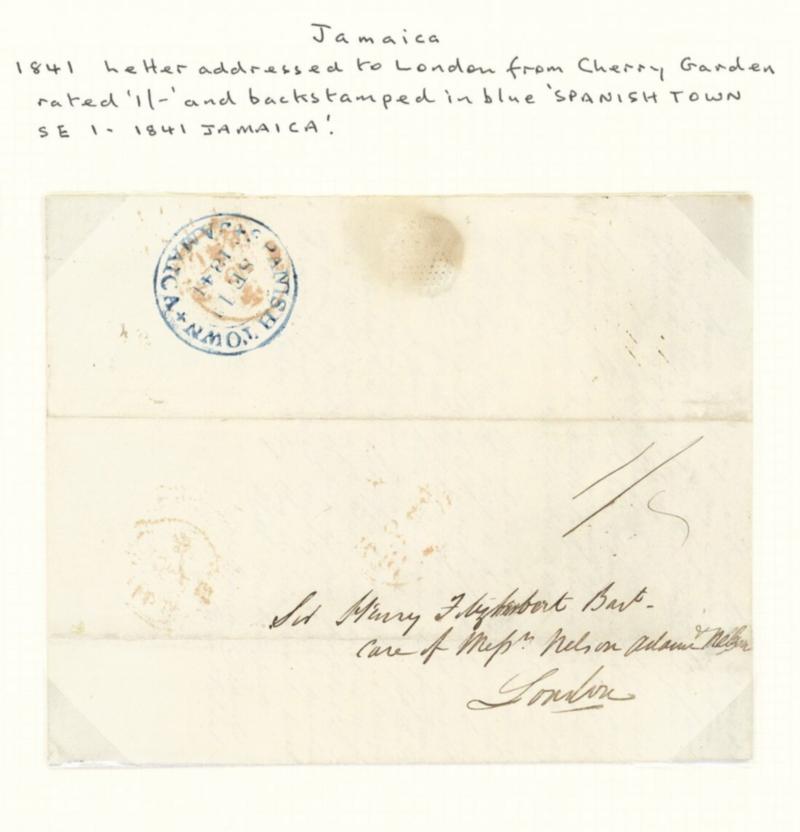 Jamaica
1841 Letter addressed to London from Cherry Garden
rated '1/-' and backstamped in blue 'SPANISH TOWN
SE 1 - 1841 JAMAICA'.
SPANISH TOWN + JAMAICA +
SE 1
1841
1/
Sir Henry Fitzherbert Bart-
Care of Messrs Nelson Adam & Nelson
London